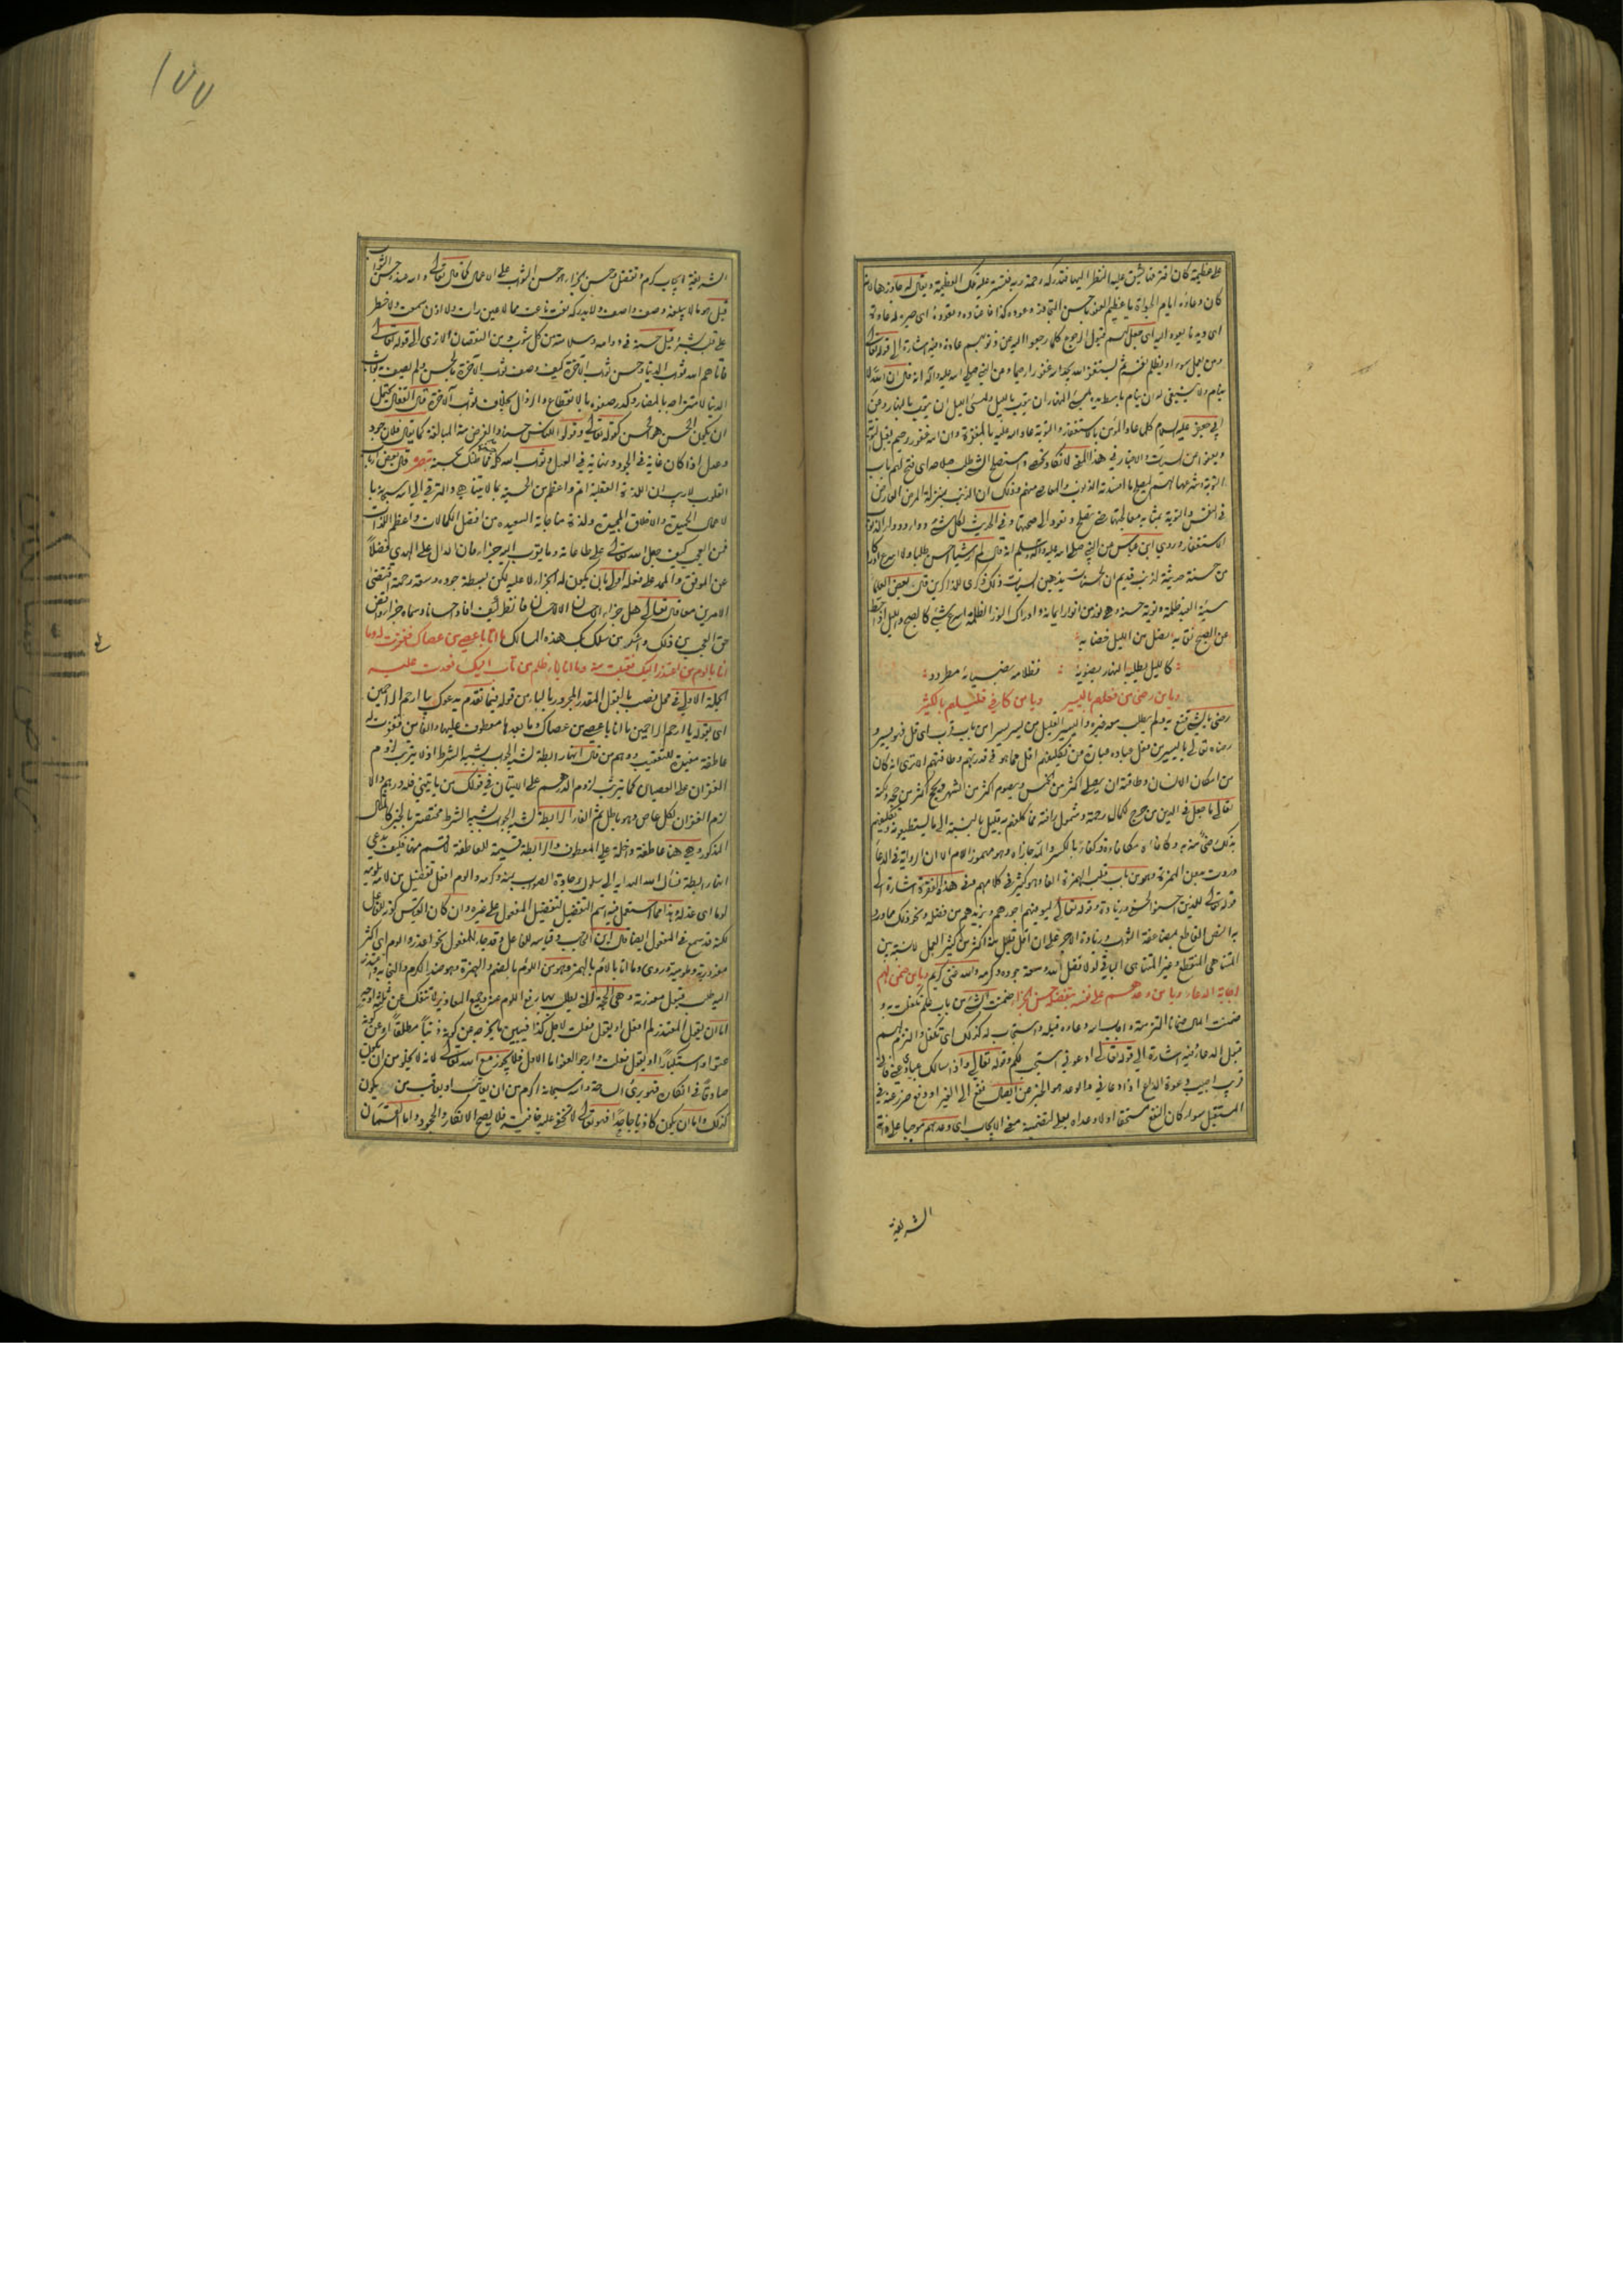 على عظيمة كان اقترفها يشق عليه النظر اليها فتدركه رحمة ربه فتستر عليه تلك العظيمة ويقال له عاد بها لما
كان دعاؤه ايام الحياة يا عظيم العفو يا حسن التجاوز وعوده كذا فاعتاده وتعوده اى صيره له عادة
ومن يعمل سوءا او يظلم نفسه ثم يستغفر الله يجد الله غفورا رحيما وعن النبي صلى الله عليه واله انه قال ان الله لا
ينام ولا ينبغي له ان ينام باسط يده لمسئ النهار ان يتوب بالليل ولمسئ الليل ان يتوب بالنهار وعن
ابي جعفر عليه السلام كلما عاد المؤمن بالاستغفار والتوبة عاد الله عليه بالمغفرة وان الله غفور رحيم يقبل التوبة
ويعفو عن السيئات والاخبار في هذا المعنى لا تكاد تحصى واستصلح الشئ طلب صلاحه اى فتح لهم باب
التوبة وشرعها لهم ليصلح ما افسدته الذنوب والمعاصى منهم وذلك ان الذنب بمنزلة المرض العارض
في النفس والتوبة بمثابة معالجتها حتى تصلح وتعود الى صحتها وفي الحديث لكل شئ دواء ودواء الذنوب
الاستغفار وروى ابن عباس عن النبي صلى الله عليه واله وسلم انه قال لم ار شيئا احسن طلبا ولا اسرع ادراكا
من حسنة حديثة لذنب قديم ان الحسنات يذهبن السيئات ذلك ذكرى للذاكرين قال بعض العلماء
سيئة العبد ظلمة وتوبة حسنة وهى نور من انوار ايمانه وادراك النور الظلمة اسرع شئ كالصبح والليل اذا سقط
عن الصبح نقابه نصل من الليل خضابه
كالليل يطلبه النهار بضوئه : فظلامه بضيائه مطرود
ويا من رضى من فعلهم باليسير ويا من كافى قليلهم بالكثير
رضى بالشئ قنع به ولم يطلب معه غيره واليسير القليل من يسر ييسر من باب قرب اى قل فهو يسير و
رضاه تعالى باليسير من فعل عباده عبارة عن تكليفهم اقل مما هو في قدرتهم وطاقتهم الا ترى انه كان
من امكان الانسان وطاقته ان يصلى اكثر من الخمس ويصوم اكثر من الشهر ويحج اكثر من حجة ولكنه
تعالى ما جعل في الدين من حرج لكمال رحمته وشمول رافته فما كلفهم به قليل بالنسبة الى ما يستطيعونه
قوله تعالى للذين احسنوا الحسنى وزيادة وقوله تعالى ليوفيهم اجورهم ويزيدهم من فضله ونحو ذلك مما ورد
المتناهى المنقطع وغير المتناهى الباقى لولا تفضل الله وسعة جوده وكرمه والله غنى كريم ويا من ضمن لهم
اجابة الدعاء ويا من وعدهم على نفسه بتفضله حسن الجزاء ضمنت الشئ من باب علم تكفلت به و
ضمنت المال ضمانا التزمته واجاب الله دعاءه قبله واستجاب له كذلك اى تكفل والتزم لهم
قبول الدعاء وفيه اشارة الى قوله تعالى ادعونى استجب لكم وقوله تعالى واذا سالك عبادى عنى فانى
قريب اجيب دعوة الداع اذا دعان والوعد هو الخبر عن ايصال نفع الى الغير او دفع ضرر عنه في
المستقبل سواء كان النفع مستحقا اولا وعداه بعلى لتضمينه معنى الايجاب اى وعدهم موجبا على ذاته
الشريفة
١٧٧
الشريفة ايجاب كرم وتفضل وحسن الجزاء هو حسن الثواب على الاعمال كما قال تعالى والله عنده حسن الثواب
قيل هو ما لا يبلغه وصف واصف ولا يدركه نعت ناعت مما لا عين رات ولا اذن سمعت ولا خطر
على قلب بشر وقيل حسنه في دوامه وسلامته من كل شوب من النقصان الا ترى الى قوله تعالى
فاتاهم الله ثواب الدنيا وحسن ثواب الاخرة كيف وصف ثواب الاخرة بالحسن ولم يصف به ثواب
الدنيا لامتزاجه بالمضار وكدر صفوه بالانقطاع والزوال بخلاف ثواب الاخرة قال القفال يحتمل
ان يكون الحسن هو الحسن كقوله تعالى وقولوا للناس حسنا والغرض منه المبالغة كما يقال فلان جود
وعدل اذا كان غاية في الجود ونهاية في العدل وثواب الله كله حسن فما ظنك بحسنه تبصرة قال بعض ارباب
القلوب لا ريب ان اللذة العقلية اتم واعظم من الحسية بما لا يتناهى والترقى الى الله سبحانه با
لاعمال الحسنة والاخلاق الجميلة ولذة مناجاته السعيدة من افضل الكمالات واعظم اللذات
فمن العجب كيف جعل الله تعالى على طاعاته وما يقرب اليه جزاء فان الدال على الهدى فضلا
عن الموفق والممد على فعله اولى بان يكون له الجزاء لا عليه لكن لبسطة جوده وسعة رحمته اقتضى
الامرين معا قال تعالى هل جزاء الاحسان الا الاحسان فانظر كيف افاد احسانا وسماه جزاء واقض
حق العجب من ذلك واشكر من سلك بك هذه المسالك ما انا باعصى من عصاك فغفرت له وما
انا بالوم من اعتذر اليك فقبلت منه وما انا باظلم من تاب اليك فعدت عليه
الجملة الاولى في محل نصب بالقول المقدر المجرور بالباء من قوله فيما تقدم يدعوك بيا ارحم الراحمين
اى بقوله يا ارحم الراحمين ما انا باعصى من عصاك وما بعدها معطوف عليها والفاء من فغفرت له
عاطفة مفيدة للتعقيب ووهم من قال انها رابطة لشبه الجواب بشبه الشرط اذ لا يترتب لزوم
الغفران على العصيان كما يترتب لزوم الدرهم على الاتيان في قولك من ياتينى فله درهم والا
لزم الغفران لكل عاص وهو باطل ثم الفاء الرابطة لشبه الجواب بشبه الشرط مختصة بالخبر كالمثال
المذكور وهى هنا عاطفة داخلة على المعطوف والرابطة قسيمة للعاطفة لا قسم منها فكيف يدعى
انها رابطة نسال الله الهداية الى سلوك جادة الصواب بمنه وكرمه والوم افعل تفضيل من لامه يلومه
لوما اى عذله وهذا مما استعمل فيه اسم التفضيل لتفضيل المفعول على غيره وان كان القياس كونه للفاعل
لكنه قد سمع في المفعول ايضا قال ابن الحاجب وقياسه للفاعل وقد جاء للمفعول نحو اعذر والوم اى اكثر
معذورية وملومية وروى وما انا بالام بالهمز وهو من اللؤم بالضم والهمزة وهو ضد الكرم والنجابة واعتذر
اليه طلب قبول معذرته وهى الحجة التى يطلب بها رفع اللوم عنه وجميع المعاذير لا تنفك عن ثلاثة اوجه
اما ان يقول المعتذر لم افعل او يقول فعلت لاجل كذا فيبين ما يخرجه عن كونه ذنبا مطلقا او عن كونه
عتوا واستكبارا او يقول فعلت وارجو العفو اما الاول فلا يجوز مع الله تعالى لانه لا يخلو من ان يكون
صادقا في انكاره فهو برئ الساحة والله سبحانه اكرم من ان يعاتب او يعاقب من يكون
كذلك واما ان يكون كاذبا جاحدا فهو تعالى لا تخفى عليه خافية فلا يصح الانكار والجحود واما القسمان